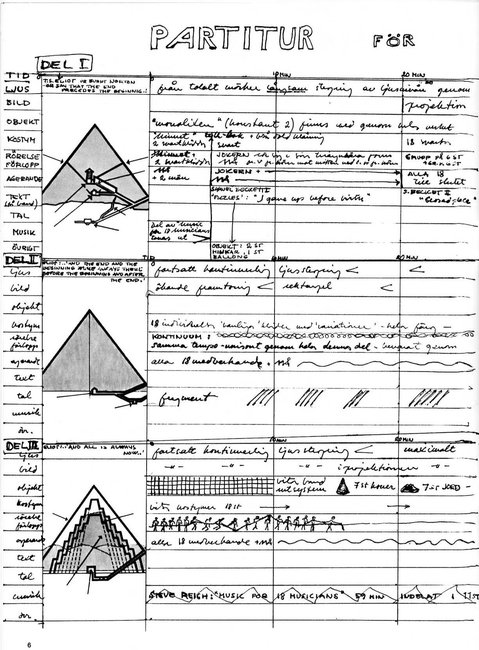 PARTITUR FÖR
DEL I
TID
10 MIN
20 MIN
LJUS
T.S. ELIOT UR BURNT NORTON
OR SAY THAT THE END
PRECEDES THE BEGINNING..!
från totalt mörker långsam stegring av ljusnivån genom
projektion
BILD
OBJEKT
"monoliten" (konstant 2) finns med genom hela verket
KOSTYM
2 svartklädda
svart
18 svarta
RÖRELSE
FÖRLOPP
2 svartklädda
JOKERN
GRUPP på 6 ST
AGERANDE
+ 2 män
JOKERN +
ALLA 18
till slutet
TEXT
(på band)
SAMUEL BECKETT II
"FIZZLES": "I gave up before birth"
S. BECKETT I
TAL
MUSIK
Del av "music
for 18 musicians
ÖVRIGT
OBJEKT: 2 ST
HINKAR, 1 ST
BALLONG
DEL II
ELIOT:.."AND THE END AND THE
BEGINNING WERE ALWAYS THERE
BEFORE THE BEGINNING AND AFTER
THE END.."
TID
10 MIN
20 MIN
ljus
fortsatt kontinuerlig ljusstegring < <
bild
ökande framtoning < rektangel <
objekt
kostym
18 individuella "vanliga" kläder med variationer - hela färg
rörelse
förlopp
KONTINUUM:
samma tempo - unisont genom hela denna del -
agerande
alla 18 medverkande +
text
tal
fragment
musik
övr.
DEL III
ELIOT:.."AND ALL IS ALWAYS
NOW..."
10 MIN
20 MIN
ljus
fortsatt kontinuerlig ljusstegring < maximalt
bild
-"- -"- i projektionen -"-
objekt
vita band
i nät system
7 st koner
7 ST JORD -
kostym
vita kostymer 18 st
rörelse
förlopp
agerande
alla 18 medverkande +
text
tal
musik
STEVE REICH: "MUSIC FOR 18 MUSICIANS" 59 MIN INDELAT I 11 ST
övr.
6